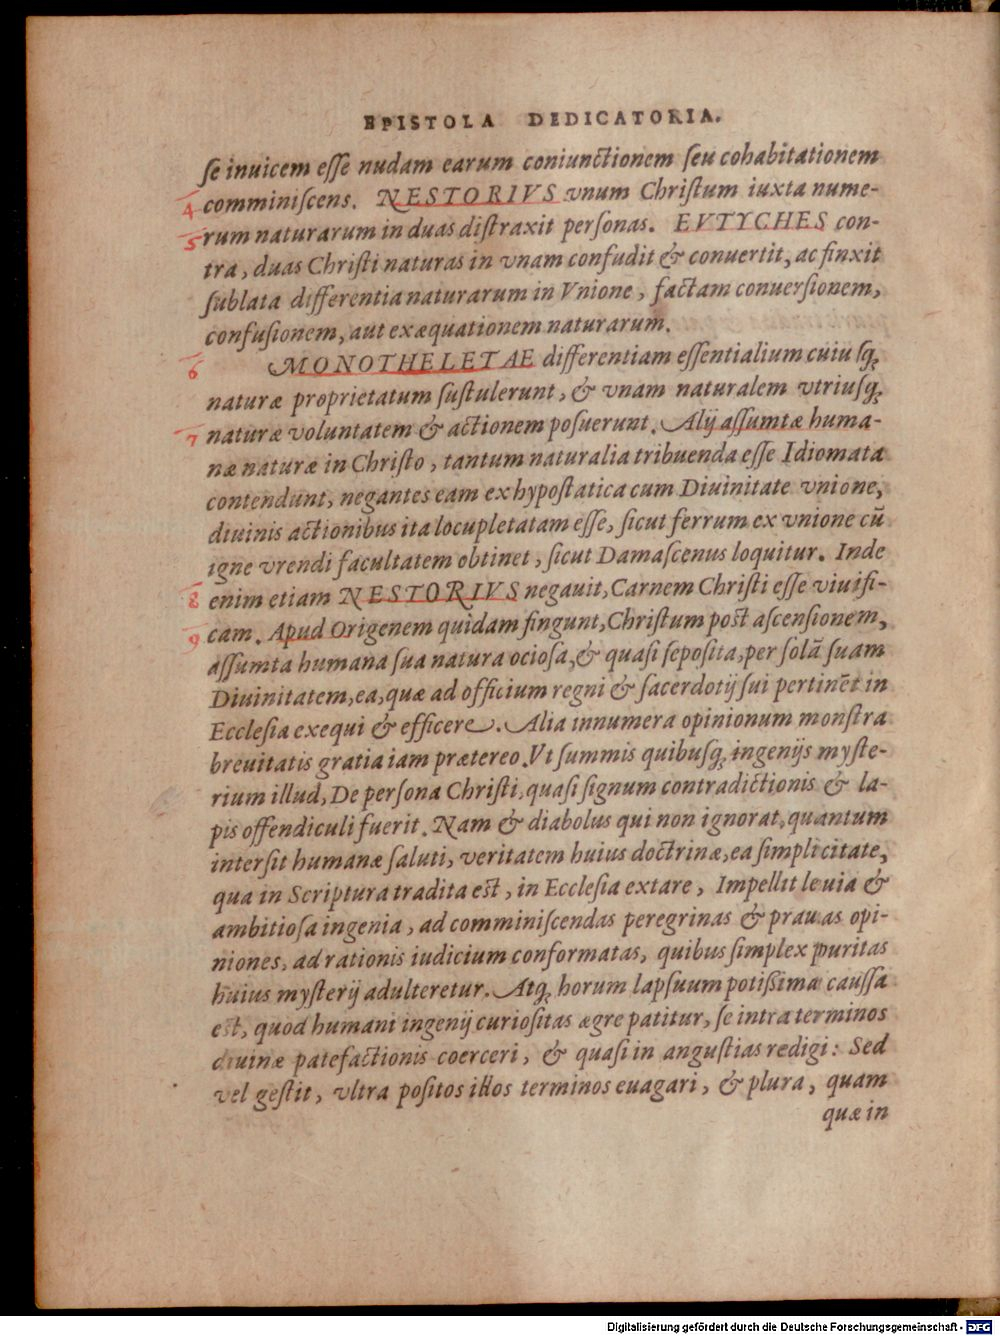 EPISTOLA DEDICATORIA.
ſe inuicem eſſe nudam earum coniunctionem ſeu cohabitationem
4 comminiſcens. NESTORIVS vnum Chriſtum iuxta nume-
5 rum naturarum in duas diſtraxit perſonas. EVTYCHES con-
tra, duas Chriſti naturas in vnam confudit & conuertit, ac finxit
ſublata differentia naturarum in Vnione, factam conuerſionem,
confuſionem, aut exæquationem naturarum.
6 MONOTHELETAE differentiam eſſentialium cuiuſq;
naturæ proprietatum ſuſtulerunt, & vnam naturalem vtriuſq;
7 naturæ voluntatem & actionem poſuerunt. Alij aſſumtæ huma-
næ naturæ in Chriſto, tantum naturalia tribuenda eſſe Idiomata
contendunt, negantes eam ex hypoſtatica cum Diuinitate vnione,
diuinis actionibus ita locupletatam eſſe, ſicut ferrum ex vnione cũ
igne vrendi facultatem obtinet, ſicut Damaſcenus loquitur. Inde
8 enim etiam NESTORIVS negauit, Carnem Chriſti eſſe viuifi-
9 cam. Apud Origenem quidam fingunt, Chriſtum poſt aſcenſionem,
aſſumta humana ſua natura ocioſa, & quaſi ſepoſita, per ſolã ſuam
Diuinitatem, ea, quæ ad officium regni & ſacerdotij ſui pertinẽt in
Eccleſia exequi & efficere. Alia innumera opinionum monſtra
breuitatis gratia iam prætereo. Vt ſummis quibuſq; ingenijs myſte-
rium illud, De perſona Chriſti, quaſi ſignum contradictionis & la-
pis offendiculi fuerit. Nam & diabolus qui non ignorat, quantum
interſit humanæ ſaluti, veritatem huius doctrinæ, ea ſimplicitate,
qua in Scriptura tradita eſt, in Eccleſia extare, Impellit leuia &
ambitioſa ingenia, ad comminiſcendas peregrinas & prauas opi-
niones, ad rationis iudicium conformatas, quibus ſimplex puritas
huius myſterij adulteretur. Atq; horum lapſuum potißima cauſſa
eſt, quod humani ingenij curioſitas ægre patitur, ſe intra terminos
diuinæ patefactionis coerceri, & quaſi in anguſtias redigi: Sed
vel geſtit, vltra poſitos illos terminos euagari, & plura, quam
quæ in
Digitalisierung gefördert durch die Deutsche Forschungsgemeinschaft - DFG